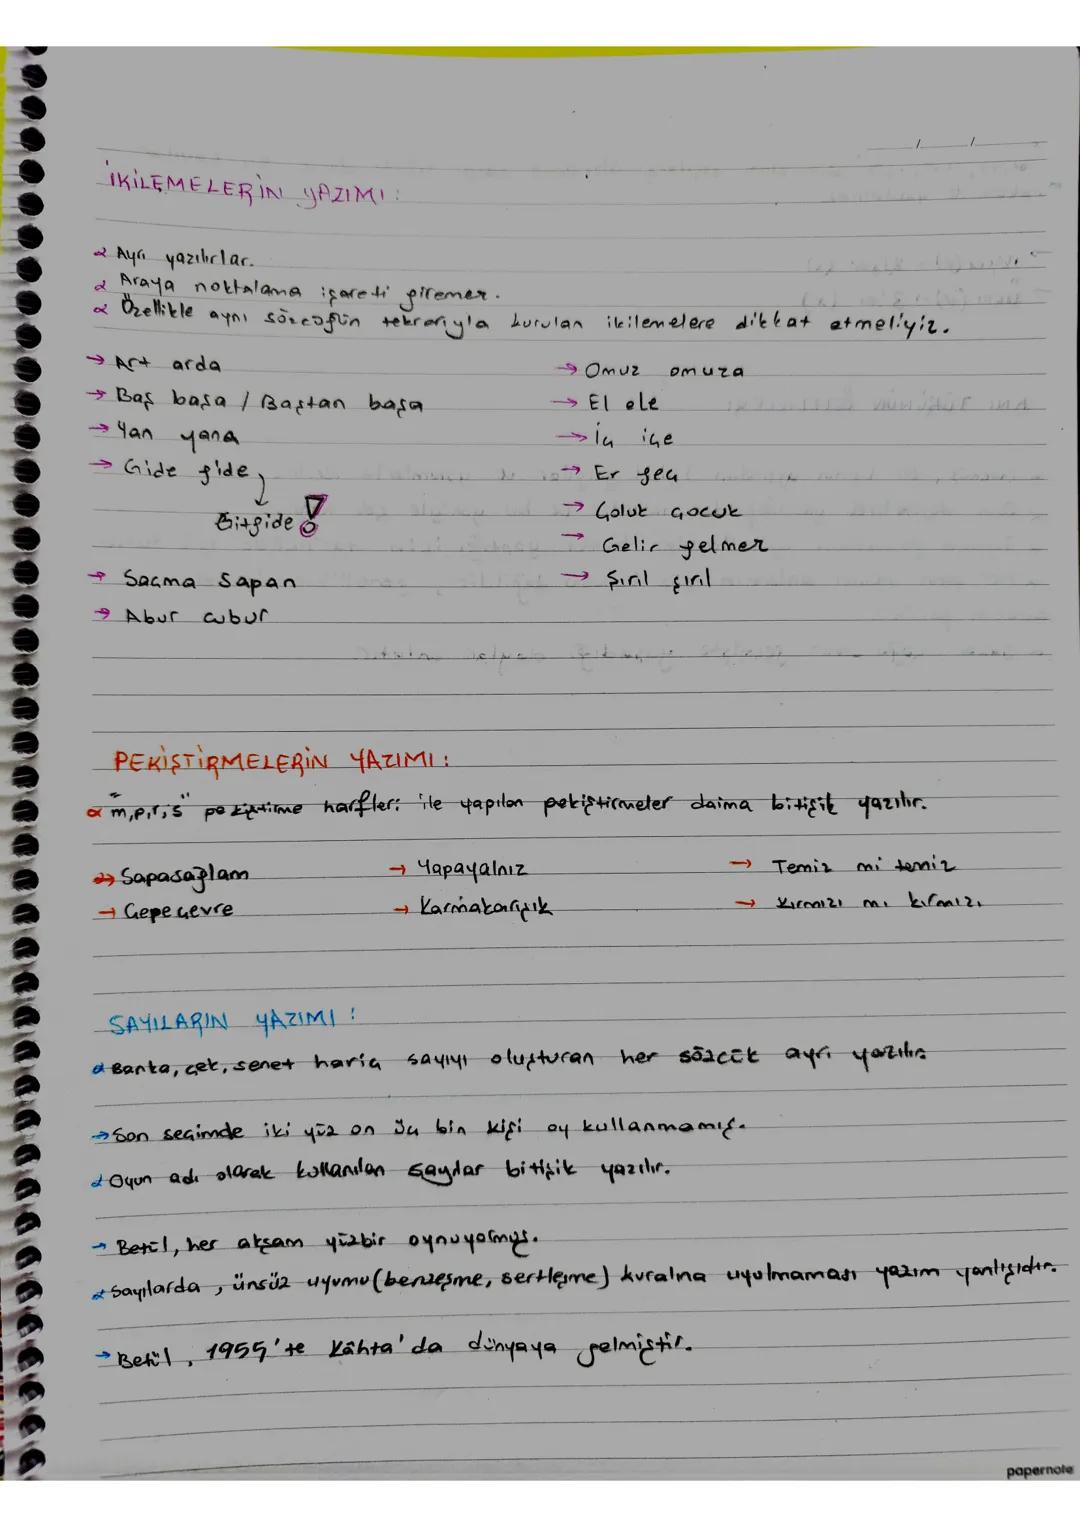 İKİLEMELERİN YAZIMI:
Ayrı yazılırlar.
Araya noktalama işareti giremez.
Özellikle aynı sözcüğün tekrarıyla kurulan ikilemelere dikkat etmeliyiz.
→ Art arda
→ Baş başa / Baştan başa
→ Yan yana
→ Gide gide
Bitgide !
→ Saçma sapan
→ Abur cubur
→ Omuz omuza
→ El ele
→ İç içe
→ Er geç
→ Çoluk çocuk
→ Gelir gelmez
→ Şırıl şırıl
PEKİŞTİRMELERİN YAZIMI:
"m,p,r,s" pekiştirme harfleri ile yapılan pekiştirmeler daima bitişik yazılır.
→ Sapasağlam → Yapayalnız → Temiz mi temiz
→ Çepeçevre → Karmakarışık → Kırmızı mı kırmızı
SAYILARIN YAZIMI:
Banka, çek, senet hariç sayıyı oluşturan her sözcük ayrı yazılır.
→ Son seçimde iki yüz on üç bin kişi oy kullanmamış.
Oyun adı olarak kullanılan sayılar bitişik yazılır.
→ Betül, her akşam yüzbir oynuyormuş.
Sayılarda, ünsüz uyumu (benzeşme, sertleşme) kuralına uyulmaması yazım yanlışıdır.
→ Betül, 1955'te Kâhta'da dünyaya gelmiştir.
papernote